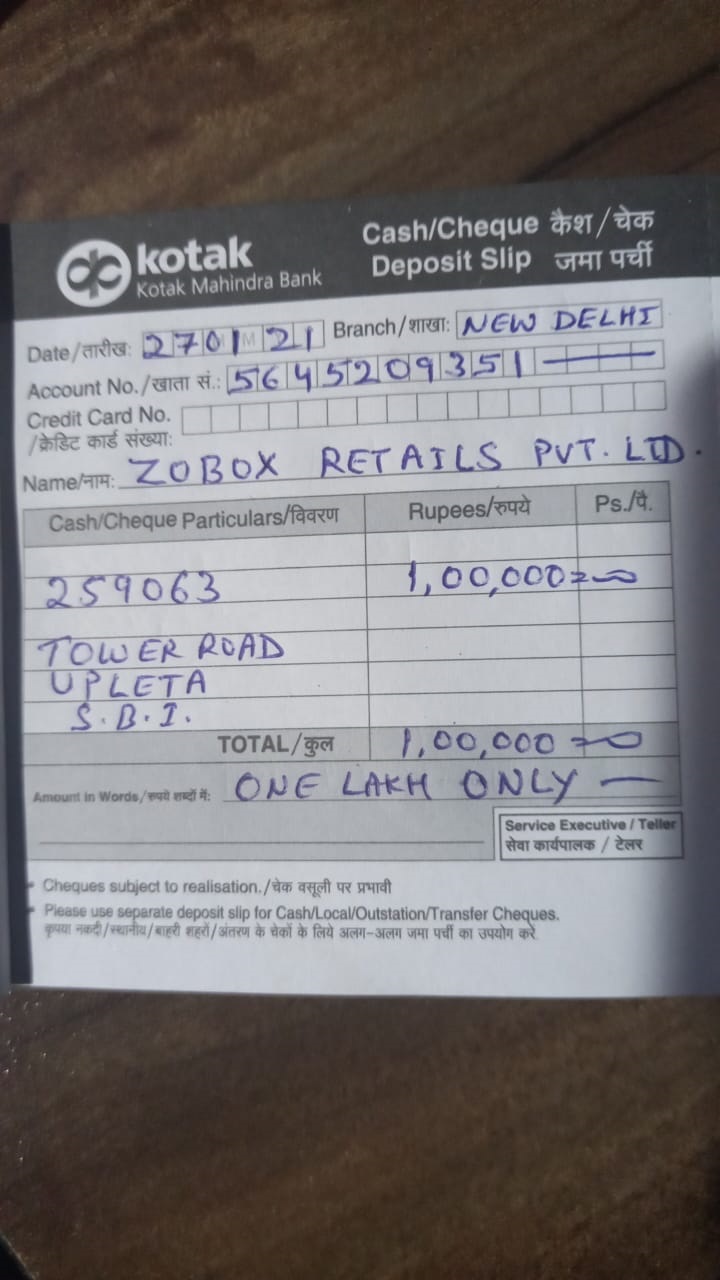 kotak
Kotak Mahindra Bank
Cash/Cheque कैश/चेक
Deposit Slip जमा पर्ची
Date/तारीख: 270121 Branch/शाखा: NEW DELHI
Account No./खाता सं.: 5645209351
Credit Card No.
/क्रेडिट कार्ड संख्या:
Name/नाम: ZOBOX RETAILS PVT. LTD.
Cash/Cheque Particulars/विवरण Rupees/रुपये Ps./पै.
259063 1,00,000=00
TOWER ROAD
UPLETA
S.B.I.
TOTAL/कुल 1,00,000=00
Amount in Words/रुपये शब्दों में: ONE LAKH ONLY —
Service Executive / Teller
सेवा कार्यपालक / टेलर
Cheques subject to realisation./चेक वसूली पर प्रभावी
Please use separate deposit slip for Cash/Local/Outstation/Transfer Cheques.
कृपया नकदी/स्थानीय/बाहरी शहरों/अंतरण के चेकों के लिये अलग-अलग जमा पर्ची का उपयोग करें